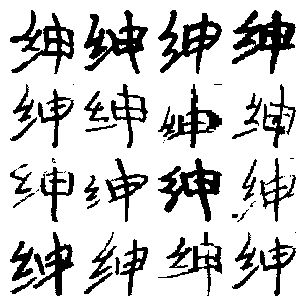 绅绅绅绅
绅绅绅绅
绅绅绅绅
绅绅绅绅